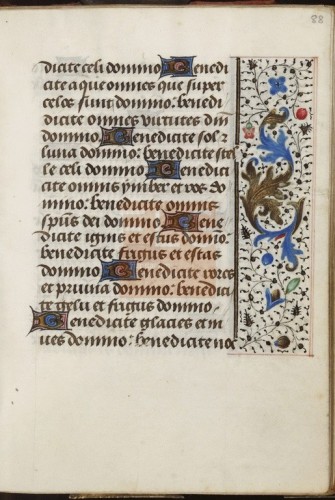 88
dicite celi domino Benedi
cite aque omnes que super
celos sunt domino: benedi
dicite omnes virtutes dni
domino Benedicite sol &
luna domino: benedicite ste
le celi domino Benedi
cite omnis ymber et ros do
mino: benedicite omnis
spūs dei domino Bene
dicite ignis et estus domino:
benedicite frigus et estas
domino Benedicite rores
et pruina domino: benedici
te gelu et frigus domino
Benedicite glacies et ni
ues domino: benedicite noc